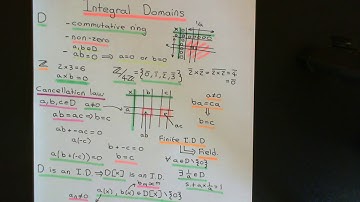 Integral Domains
D - commutative ring
- non-zero
- a,b∈D
ab=0 ⇒ a=0 or b=0
ℤ 2×3=6
a×b=0
ℤ/4ℤ={0̄,1̄,2̄,3̄}
2̄×2̄=2̄×2̄=4̄
=0̄
Cancellation law
a,b,c∈D a≠0
ab=ac ⇒ b=c
ab+-ac=0
a(-c)
a(b+-c)=0
b+-c=0
b=c
x b c
a
ab ac
a≠0
ba=ca
⇒
b=c
Finite I.D D
⇒ Field.
∀ a∈D\{0}
∃ 1/a ∈D
s.t a×1/a=1
D is an I.D ⇒ D[x] is an I.D.
a(x), b(x) ∈ D[x]\{0}